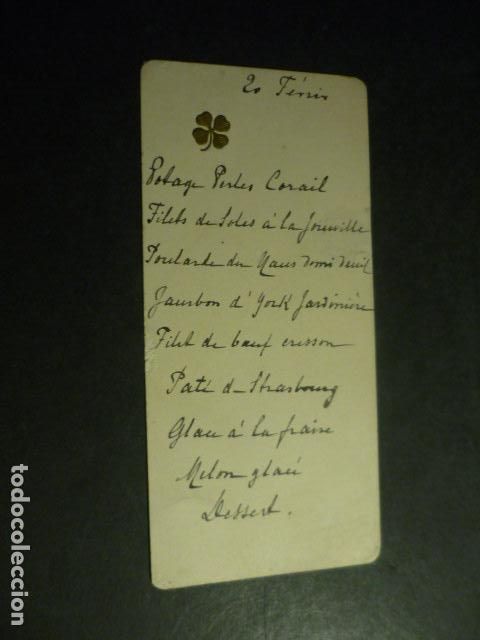 20 Février
Potage Perles Corail
Filets de Soles à la Joinville
Poularde du Mans demi deuil
Jambon d'York Jardinière
Filet de bœuf cresson
Paté de Strasbourg
Glace à la fraise
Melon glacé
Dessert.
todocoleccion